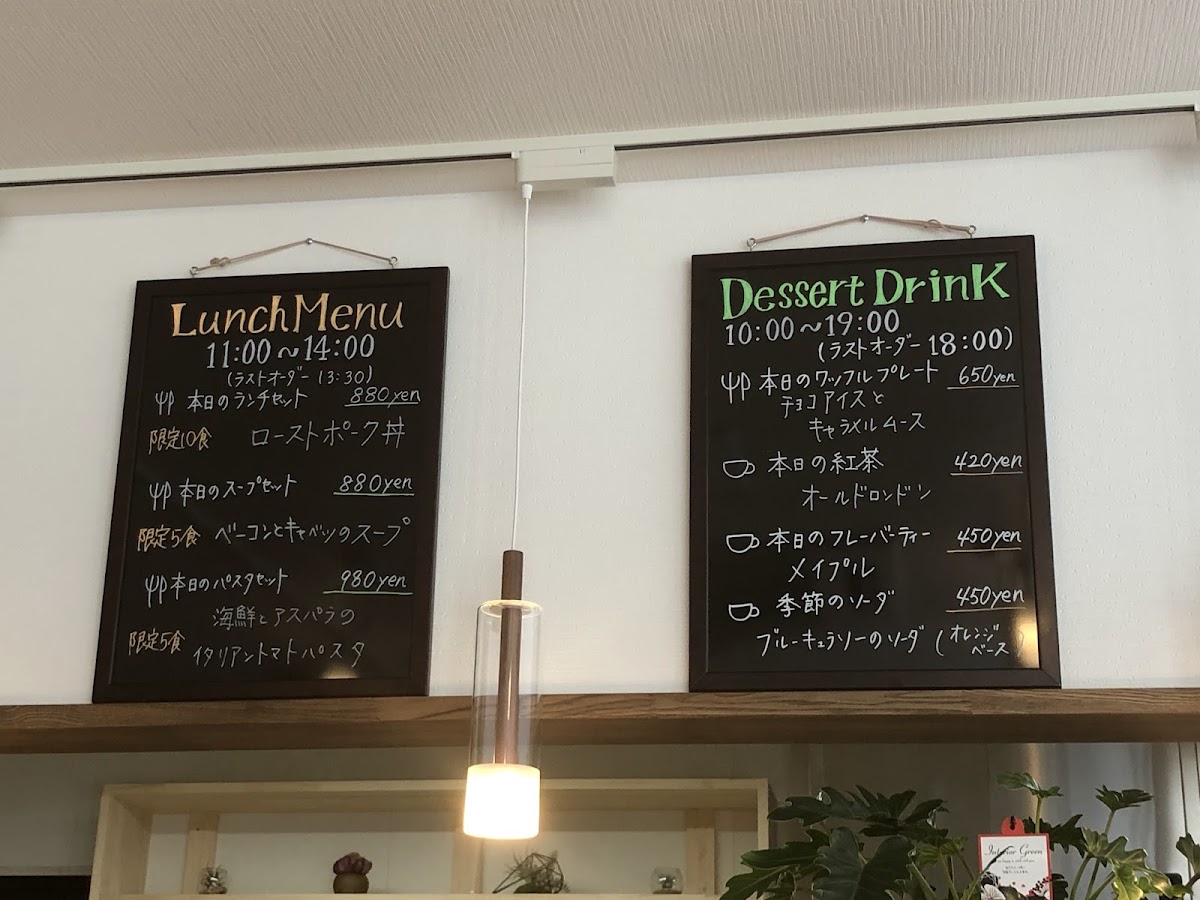 Lunch Menu
11:00～14:00
(ラストオーダー 13:30)
本日のランチセット 880yen
限定10食 ローストポーク丼
本日のスープセット 880yen
限定5食 ベーコンとキャベツのスープ
本日のパスタセット 980yen
海鮮とアスパラの
限定5食 イタリアントマトパスタ
Dessert Drink
10:00～19:00
(ラストオーダー 18:00)
本日のワッフルプレート 650yen
チョコアイスと
キャラメルムース
本日の紅茶 420yen
オールドロンドン
本日のフレーバーティー 450yen
メイプル
季節のソーダ 450yen
ブルーキュラソーのソーダ (オレンジベース)
Interior Green